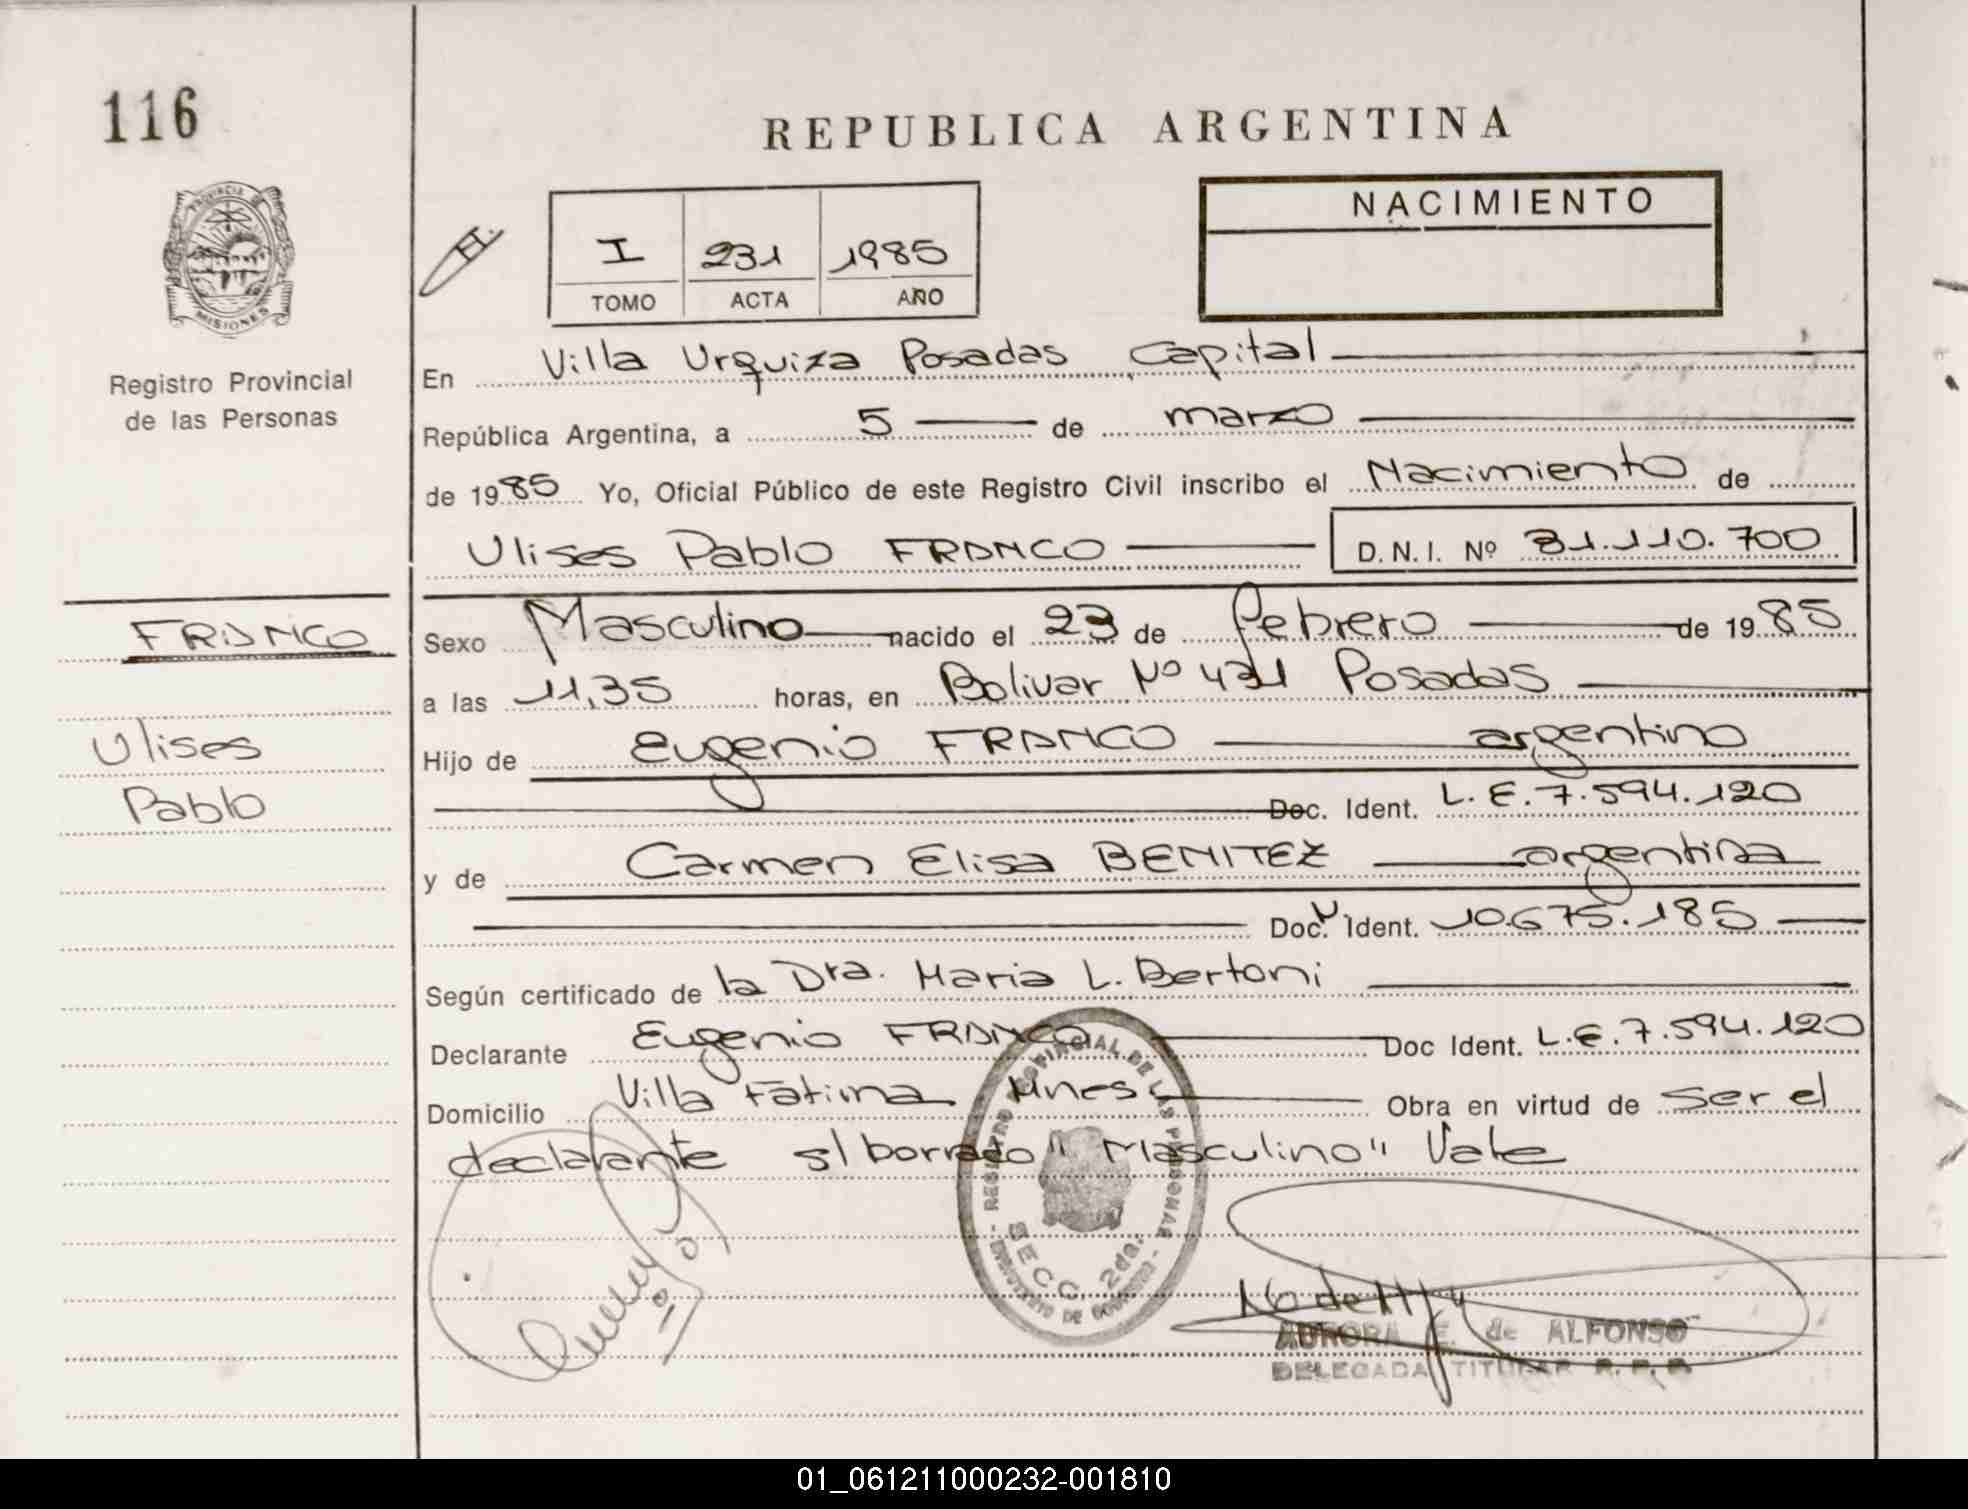 116
REPUBLICA ARGENTINA
PROVINCIA DE MISIONES
Registro Provincial
de las Personas
NACIMIENTO
I 231 1985
TOMO ACTA AÑO
En Villa Urquiza Posadas Capital
República Argentina, a 5 de marzo
de 1985 Yo, Oficial Público de este Registro Civil inscribo el Nacimiento de
Ulises Pablo FRANCO D.N.I. Nº 31.110.700
FRANCO
Ulises
Pablo
Sexo Masculino nacido el 23 de Febrero de 1985
a las 11,35 horas, en Bolivar Nº 431 Posadas
Hijo de Eugenio FRANCO argentino
Doc. Ident. L.E.7.594.120
y de Carmen Elisa BENITEZ argentina
Doc. Ident. 10.675.185
Según certificado de la Dra. Maria L. Bertoni
Declarante Eugenio FRANCO Doc Ident. L.E.7.594.120
Domicilio Villa Fatima Mnes Obra en virtud de ser el
declarante s/borrado "Masculino" Vale
REGISTRO PROVINCIAL DE LAS PERSONAS
SECC. 2da.
MINISTERIO DE GOBIERNO
AURORA E. de ALFONSO
DELEGADA TITULAR R. P. P.
01_061211000232-001810